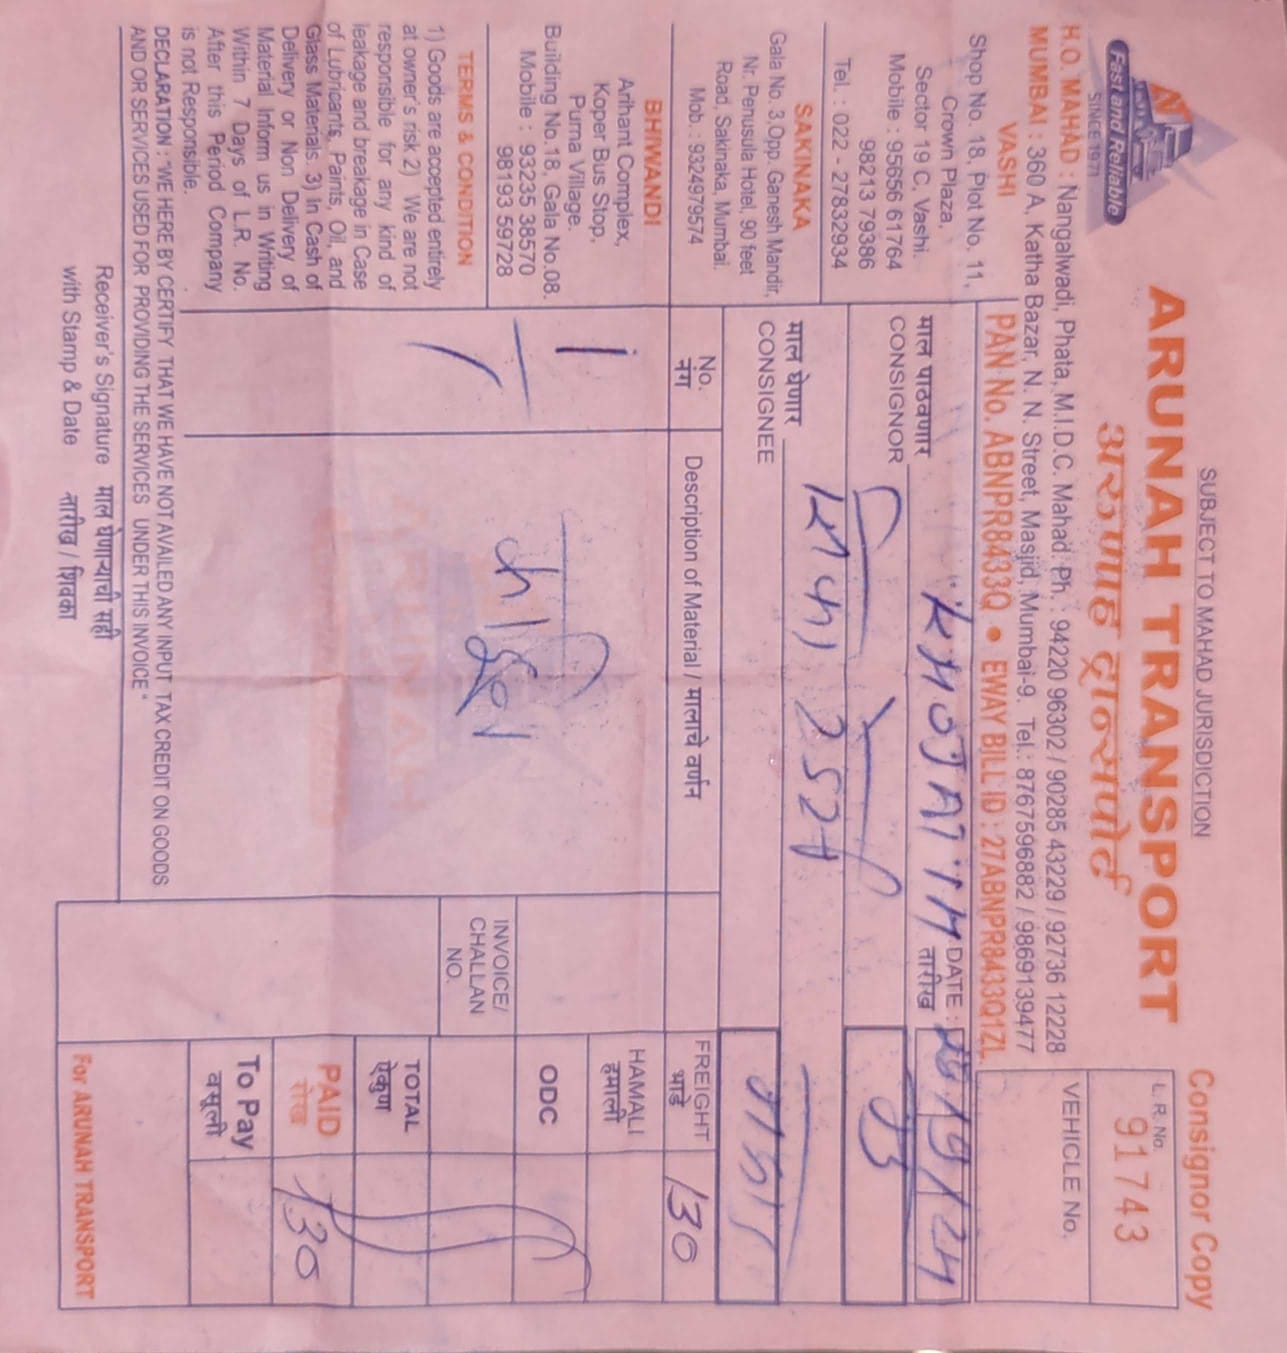 SUBJECT TO MAHAD JURISDICTION
Consignor Copy
ARUNAH TRANSPORT
अरुणाह ट्रान्सपोर्ट
Fast and Reliable
SINCE 1971
L. R. No.
91743
H.O. MAHAD : Nangalwadi, Phata, M.I.D.C. Mahad. Ph. : 94220 96302 / 90285 43229 / 92736 12228
MUMBAI : 360 A, Katha Bazar, N. N. Street, Masjid, Mumbai-9. Tel.: 8767596882 / 9869139477
VEHICLE No.
PAN No. ABNPR8433Q • EWAY BILL ID : 27ABNPR8433Q1ZL
VASHI
Shop No. 18, Plot No. 11,
Crown Plaza,
Sector 19 C, Vashi.
Mobile : 95656 61764
98213 79386
Tel. : 022 - 27832934
SAKINAKA
Gala No. 3,Opp. Ganesh Mandir,
Nr. Penusula Hotel, 90 feet
Road, Sakinaka, Mumbai.
Mob. : 9324979574
BHIWANDI
Arihant Complex,
Koper Bus Stop,
Purna Village.
Building No.18, Gala No.08.
Mobile : 93235 38570
98193 59728
TERMS & CONDITION
1) Goods are accepted entirely
at owner's risk 2) We are not
responsible for any kind of
leakage and breakage in Case
of Lubricants, Paints, Oil, and
Glass Materials. 3) In Cash of
Delivery or Non Delivery of
Material Inform us in Writing
Within 7 Days of L.R. No.
After this Period Company
is not Responsible.
माल पाठवणार
CONSIGNOR
DATE :
तारीख
/9/24
माल घेणार
CONSIGNEE
No.
नंग
Description of Material / मालाचे वर्णन
FREIGHT
भाडे
130
HAMALI
हमाली
ODC
INVOICE/
CHALLAN
NO.
TOTAL
ऐकुण
PAID
रोख
130
To Pay
वसूली
DECLARATION : "WE HERE BY CERTIFY THAT WE HAVE NOT AVAILED ANY INPUT TAX CREDIT ON GOODS
AND OR SERVICES USED FOR PROVIDING THE SERVICES UNDER THIS INVOICE "
Receiver's Signature माल घेणाऱ्याची सही
with Stamp & Date तारीख / शिक्का
For ARUNAH TRANSPORT